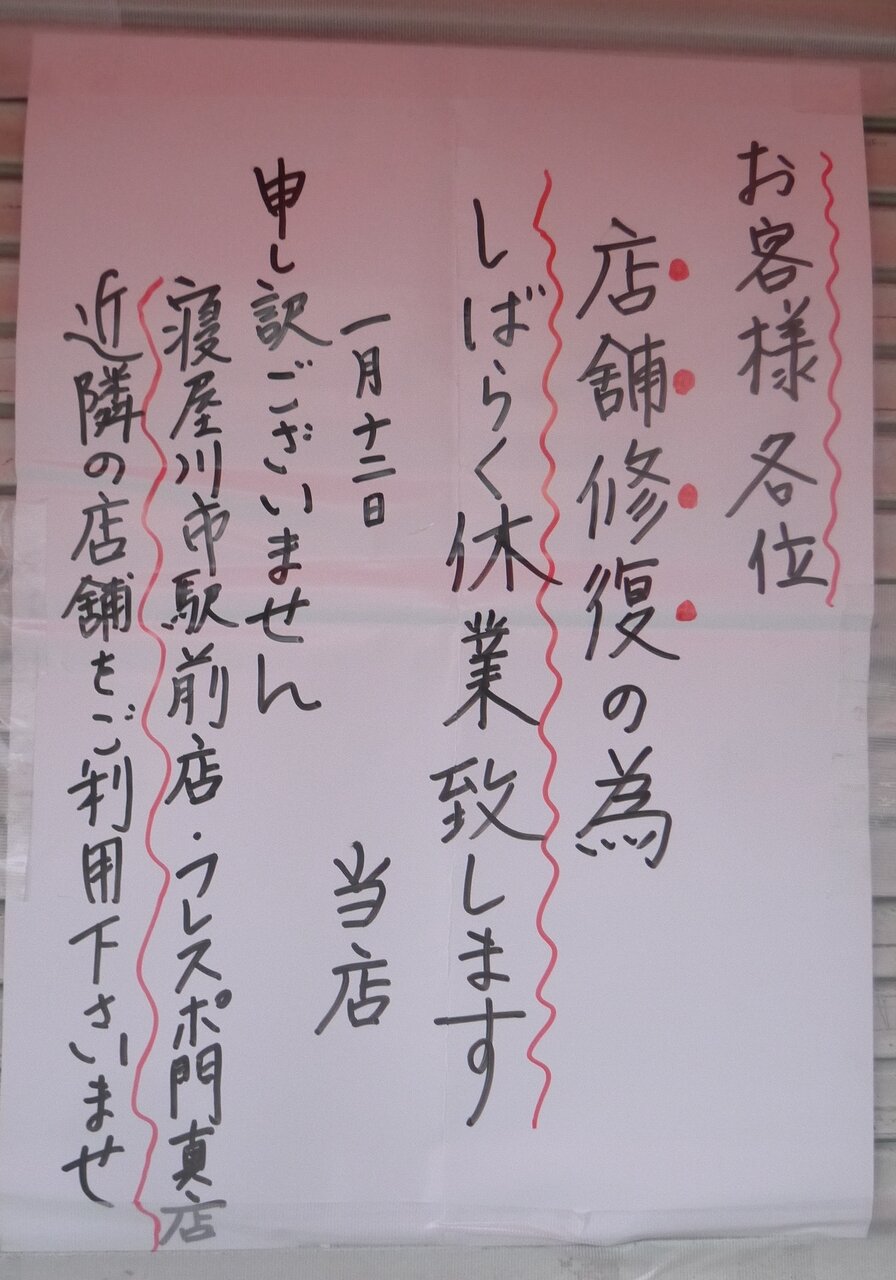 お客様各位
店舗修復の為
しばらく休業致します
一月十二日
当店
申し訳ございません
寝屋川市駅前店・フレスポ門真店
近隣の店舗をご利用下さいませ